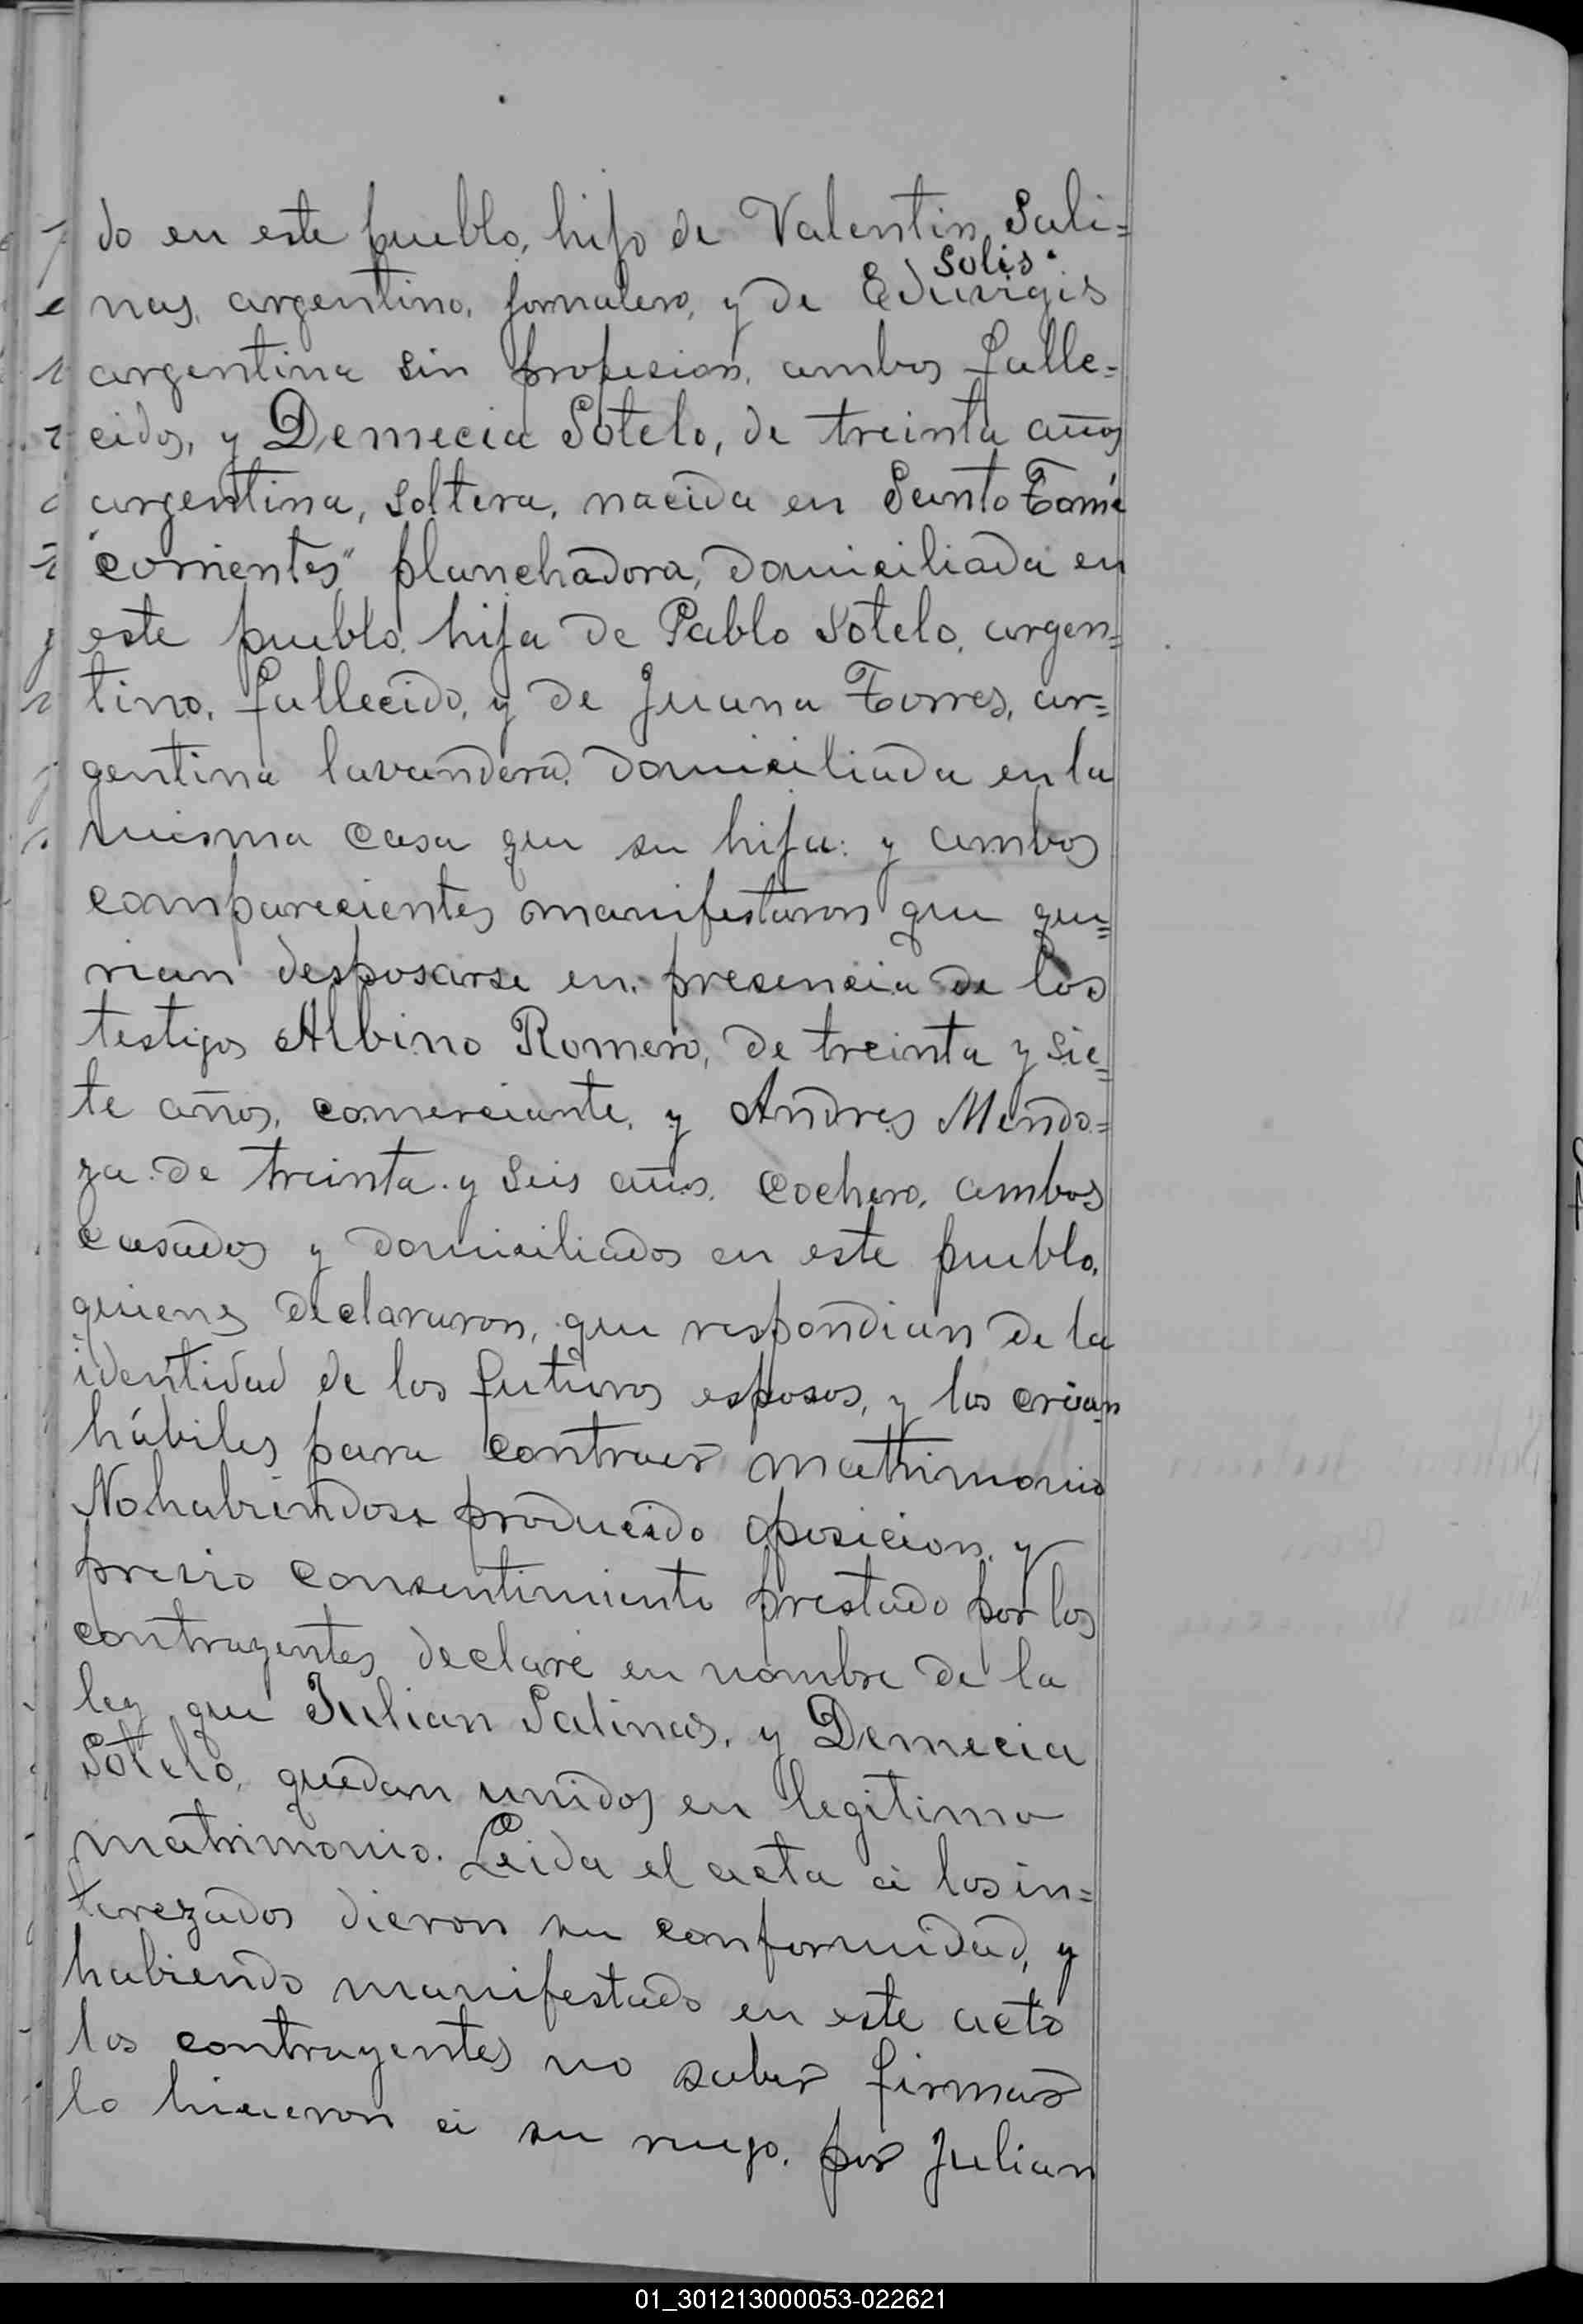 do en este pueblo, hijo de Valentin Sali=
Solis.
nas, argentino, jornalero, y de Eduvigis
argentina sin profesion, ambos falle=
cidos, y Demecia Sotelo, de treinta años
argentina, soltera, nacida en Santo Tomé
"corrientes" planchadora, domiciliada en
este pueblo, hija de Pablo Sotelo, argen=
tino, fallecido, y de Juana Torres, ar=
gentina lavandera, domiciliada en la
misma casa que su hija: y ambos
comparecientes manifestaron que que=
rian desposarse en presencia de los
testigos Albino Romero, de treinta y sie=
te años, comerciante, y Andres Mendo=
za de treinta y seis años, cochero, ambos
casados y domiciliados en este pueblo,
quienes declararon, que respondian de la
identidad de los futuros esposos, y los creian
hábiles para contraer matrimonio
No habiendose producido oposicion, y
previo consentimiento prestado por los
contrayentes declaré en nombre de la
ley que Julian Salinas, y Demecia
Sotelo, quedan unidos en legitimo
matrimonio. Leida el acta á los in=
terezados dieron su conformidad, y
habiendo manifestado en este acto
los contrayentes no saber firmar
lo hicieron á su ruego, por Julian
01_301213000053-022621